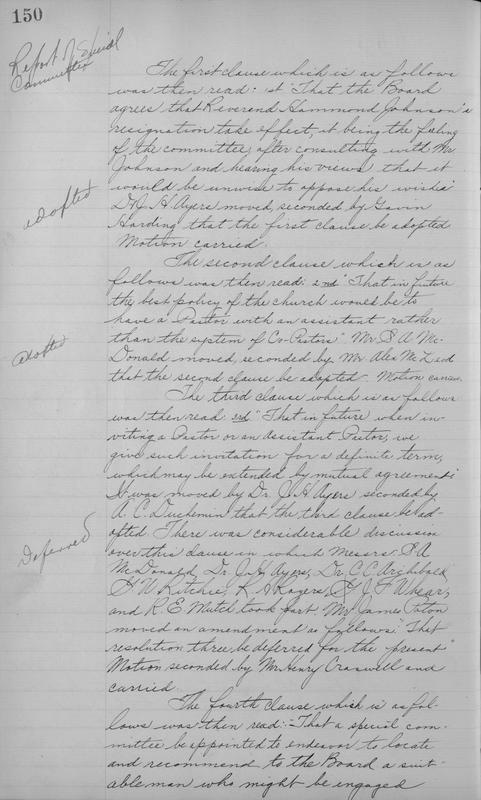 150
Report of Special
Committee
The first clause which is as follows
was then read: 1st "That the Board
agrees that Reverend Hammond Johnson's
resignation take effect, it being the feeling
of the committee, after consulting with Mr
Johnson and hearing his views, that it
would be unwise to oppose his wishes"
adopted
Dr J. H. Ayers moved, seconded by Gavin
Harding that the first clause be adopted
Motion carried.
The second clause which is as
follows was then read: 2nd "That in future
the best policy of the church would be to
have a Pastor with an assistant rather
than the system of Co-Pastors". Mr S A Mc-
adopted
Donald moved, seconded by Mr Alex McLeod
that the second clause be adopted. Motion carried.
The third clause which is as follows
was then read 3rd "That in future when in-
viting a Pastor or an Assistant Pastor, we
give such invitation for a definite term,
which may be extended by mutual agreement"
It was moved by Dr. J. H. Ayers seconded by
A. C. Duchemin that the third clause be ad-
opted. There was considerable discussion
Deferred
over this clause in which Messrs S. A
McDonald, Dr. J. H. Ayers, Dr. C. C. Archibald,
Ritchie, K. S. Rogers, Whear,
and R. E. Mutch took part. Mr. James Paton
moved an amendment as follows. "That
resolution three be deferred for the present"
Motion seconded by Mr Henry Craswell and
carried.
The fourth clause which is as fol-
lows was then read:- That a special com-
mittee be appointed to endeavor to locate
and recommend to the Board a suit-
able man who might be engaged